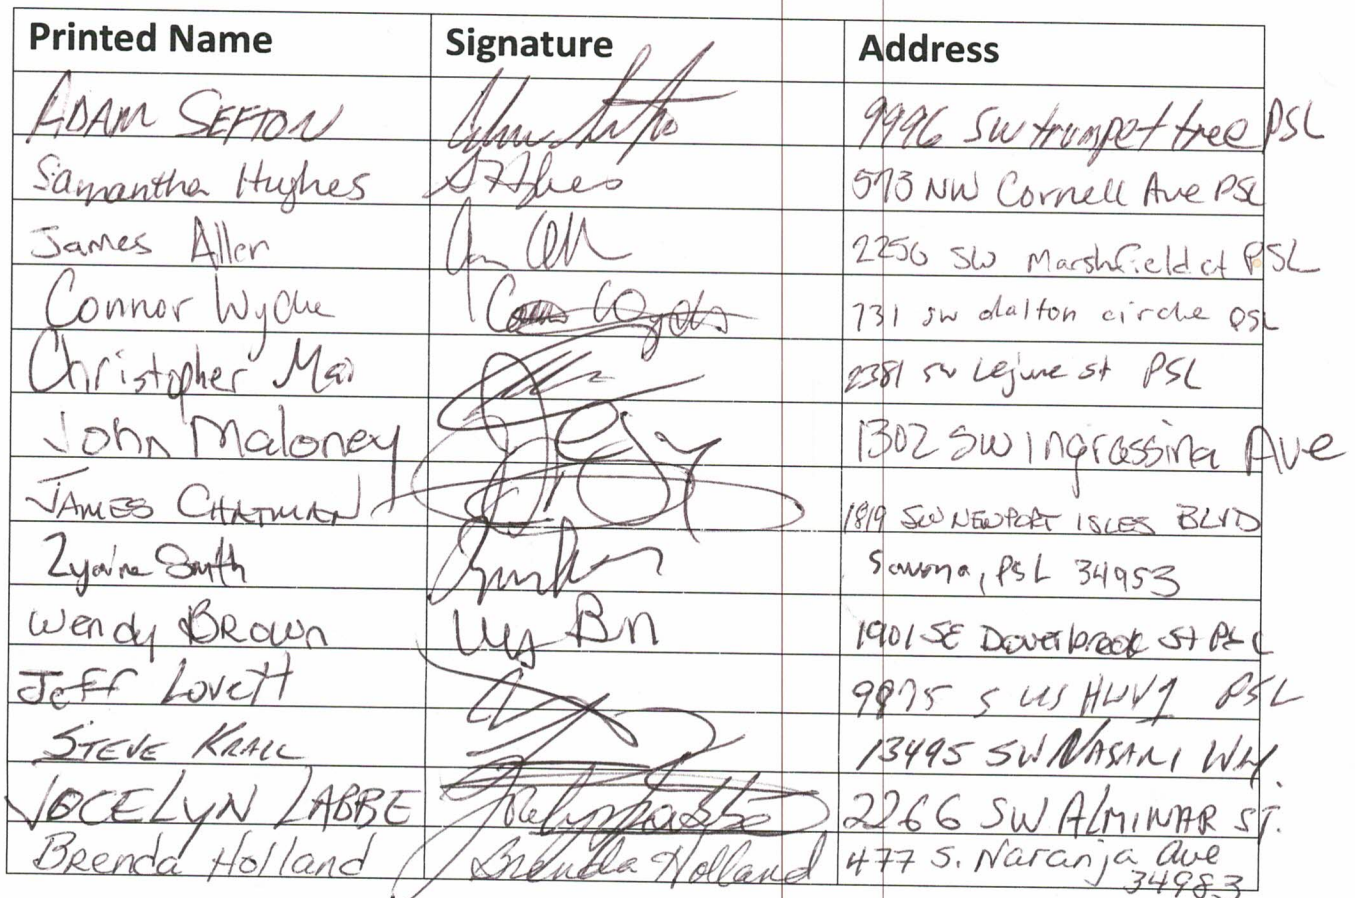 Printed Name Signature Address
ADAM SEFTON 9996 SW trumpet tree PSL
Samantha Hughes 573 NW Cornell Ave PSL
James Allen 2256 SW Marshfield ct PSL
Connor Wyche 731 sw dalton circle PSL
Christopher Mai 2381 sw Lejune st PSL
John Maloney 1302 SW Ingrassina Ave
JAMES CHATMAN 1819 SW NEWPORT ISLES BLVD
Smith Savona, PSL 34953
Wendy BROWN 1901 SE Doverbrook St PSL
Jeff Lovett 9875 S US HWY 1 PSL
STEVE KRALL 13495 SW NASARI WY.
JOCELYN LABBE Jocelyn Labbe 2266 SW ALMINAR ST.
Brenda Holland Brenda Holland 477 S. Naranja Ave
34983